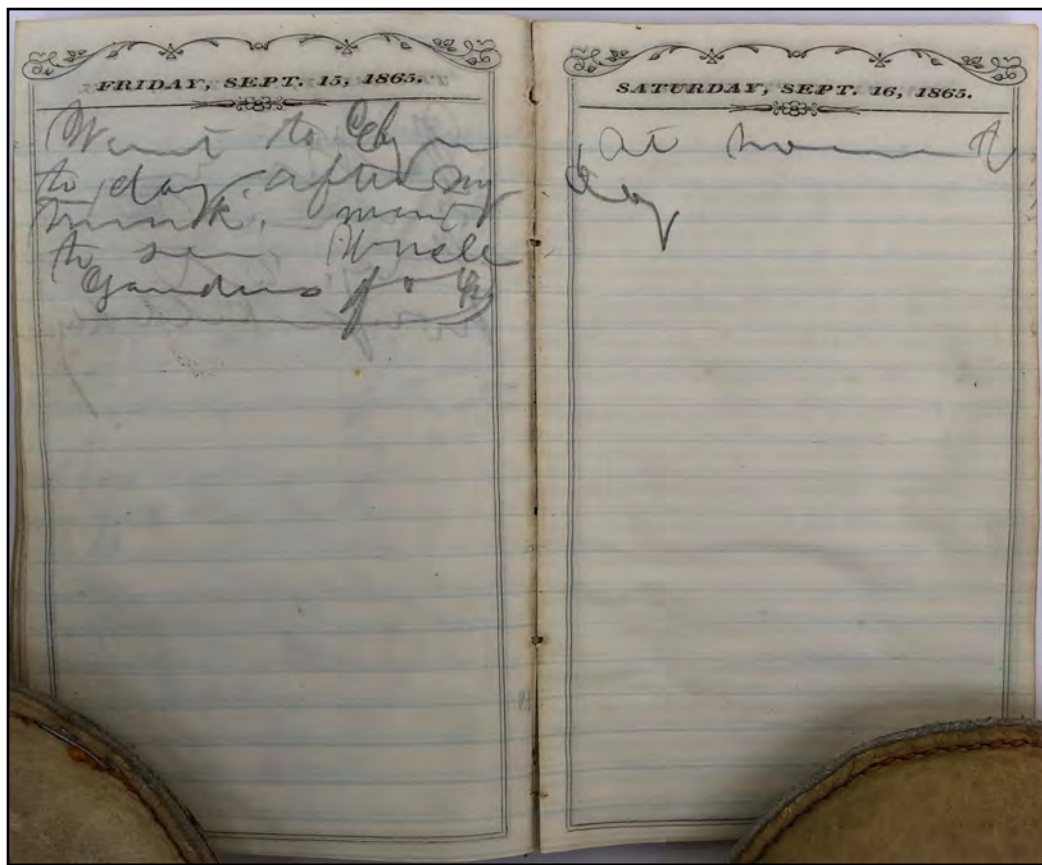 FRIDAY, SEPT. 15, 1865.
Went to Elgin
to day after my
trunk. went
to see Uncle
folks
SATURDAY, SEPT. 16, 1865.
at home to
day